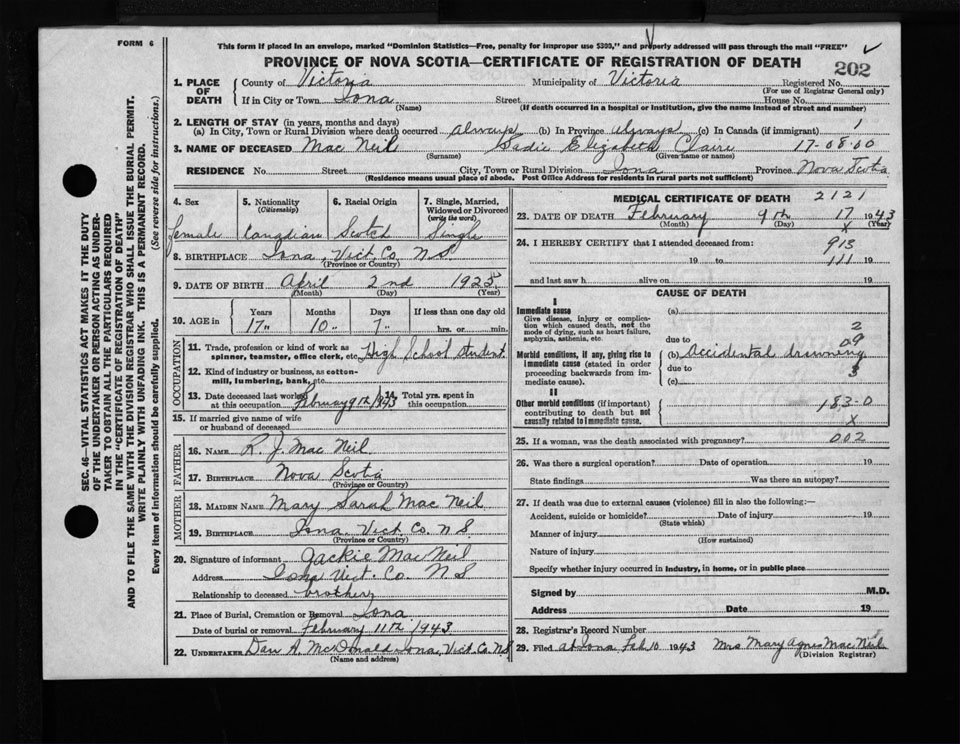 FORM 6
This form if placed in an envelope, marked "Dominion Statistics—Free, penalty for improper use $300," and properly addressed will pass through the mail "FREE"
PROVINCE OF NOVA SCOTIA—CERTIFICATE OF REGISTRATION OF DEATH
202
1. PLACE OF DEATH County of Victoria Municipality of Victoria Registered No.
(For use of Registrar General only)
If in City or Town Iona Street House No.
(Name) (If death occurred in a hospital or institution, give the name instead of street and number)
2. LENGTH OF STAY (in years, months and days)
(a) In City, Town or Rural Division where death occurred always (b) In Province always (c) In Canada (if immigrant) 1
3. NAME OF DECEASED Mac Neil Sadie Elizabeth Claire 17-08-00
(Surname) (Given name or names)
RESIDENCE No. Street City, Town or Rural Division Iona Province Nova Scotia
(Residence means usual place of abode. Post Office Address for residents in rural parts not sufficient)
4. Sex 5. Nationality 6. Racial Origin 7. Single, Married, Widowed or Divorced
(Citizenship) (write the word)
female Canadian Scotch Single
8. BIRTHPLACE Iona, Vict. Co. N S.
(Province or Country)
9. DATE OF BIRTH April 2nd 1925
(Month) (Day) (Year)
10. AGE in Years Months Days If less than one day old
17" 10" 7" hrs. or min.
OCCUPATION
11. Trade, profession or kind of work as spinner, teamster, office clerk, etc. High School student
12. Kind of industry or business, as cotton-mill, lumbering, bank, etc.
13. Date deceased last worked at this occupation February 9th 1943 14. Total yrs. spent in this occupation
15. If married give name of wife or husband of deceased
FATHER
16. NAME R. J. Mac Neil
17. BIRTHPLACE Nova Scotia
(Province or Country)
MOTHER
18. MAIDEN NAME Mary Sarah Mac Neil
19. BIRTHPLACE Iona, Vict. Co. N S.
(Province or Country)
20. Signature of informant Jackie Mac Neil
Address Iona Vict. Co. N S
Relationship to deceased brother
21. Place of Burial, Cremation or Removal Iona
Date of burial or removal February 11th 1943
22. UNDERTAKER Dan A. McDonald Iona, Vict. Co. N S
(Name and address)
MEDICAL CERTIFICATE OF DEATH 2121
23. DATE OF DEATH February 9th 17 1943
(Month) (Day) X (Year)
24. I HEREBY CERTIFY that I attended deceased from: 913
19 to 111 19
and last saw h alive on 19
CAUSE OF DEATH
I
Immediate cause (a)
Give disease, injury or complication which caused death, not the mode of dying, such as heart failure, asphyxia, asthenia, etc.
2
due to 09
Morbid conditions, if any, giving rise to immediate cause (stated in order proceeding backwards from immediate cause).
(b) Accidental drowning
due to 3
(c)
II
Other morbid conditions (if important) contributing to death but not causally related to immediate cause.
183-0
X
25. If a woman, was the death associated with pregnancy? 002
26. Was there a surgical operation? Date of operation 19
State findings Was there an autopsy?
27. If death was due to external causes (violence) fill in also the following:—
Accident, suicide or homicide? Date of injury 19
(State which)
Manner of injury
(How sustained)
Nature of injury
Specify whether injury occurred in industry, in home, or in public place
Signed by M.D.
Address Date 19
28. Registrar's Record Number
29. Filed at Iona Feb 10 1943 Mrs Mary Agnes Mac Neil
(Division Registrar)
SEC. 46—VITAL STATISTICS ACT MAKES IT THE DUTY
OF THE UNDERTAKER OR PERSON ACTING AS UNDER-
TAKER TO OBTAIN ALL THE PARTICULARS REQUIRED
IN THE "CERTIFICATE OF REGISTRATION OF DEATH"
AND TO FILE THE SAME WITH THE DIVISION REGISTRAR WHO SHALL ISSUE THE BURIAL PERMIT.
WRITE PLAINLY WITH UNFADING INK. THIS IS A PERMANENT RECORD.
Every item of information should be carefully supplied. (See reverse side for instructions.)